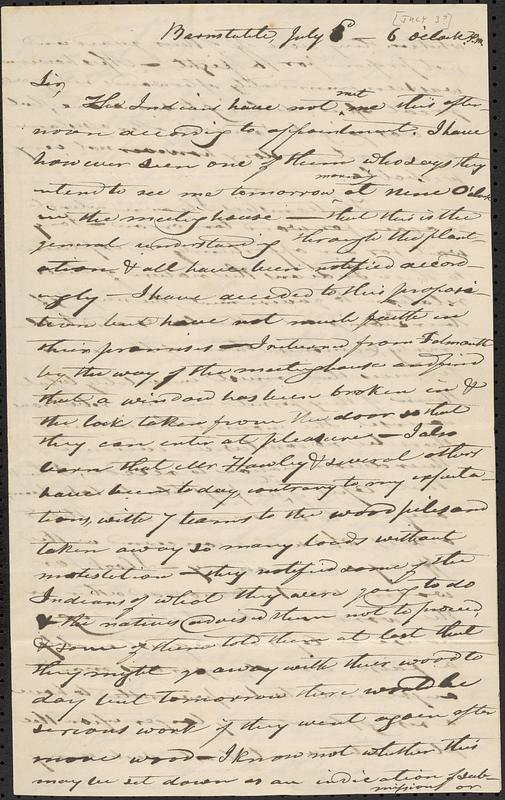 [JULY 3?]
Barnstable, July 8 — 6 o'clock P.M.
Sir,
The Indians have not met me this after-
noon according to appointment. I have
however seen one of them who says they
intend to see me tomorrow morning at nine O'clock
in the meeting house — that this is the
general understanding through the plant-
ation & all have been notified accord-
ingly — I have acceded to this proposi-
tion but have not much faith in
their promises — I returned from Falmouth
by the way of the meeting house and find
that a window has been broken in &
the lock taken from the door so that
they can enter at pleasure — I also
learn that Mr. Hawley & several others
have been today, contrary to my expecta-
tions, with 7 teams to the wood piles and
taken away so many loads without
molestation — they notified some of the
Indians of what they were going to do
& the natives advised them not to proceed
& some of them told them at last that
they might go away with their wood to
day but tomorrow there would be
serious work if they went again after
more wood — I know not whether this
may be set down as an indication of sub-
mission or